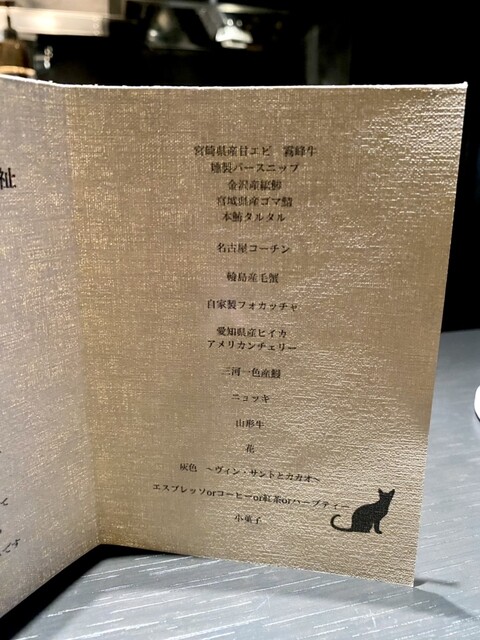 祉
宮崎県産甘エビ　霧峰牛
燻製パースニップ
金沢産縞鯵
宮城県産ゴマ鯖
本鮪タルタル
名古屋コーチン
輪島産毛蟹
自家製フォカッチャ
愛知県産ヒイカ
アメリカンチェリー
三河一色産鰻
ニョッキ
山形牛
花
灰色　～ヴィン・サントとカカオ～
エスプレッソorコーヒーor紅茶orハーブティー
小菓子
て
です